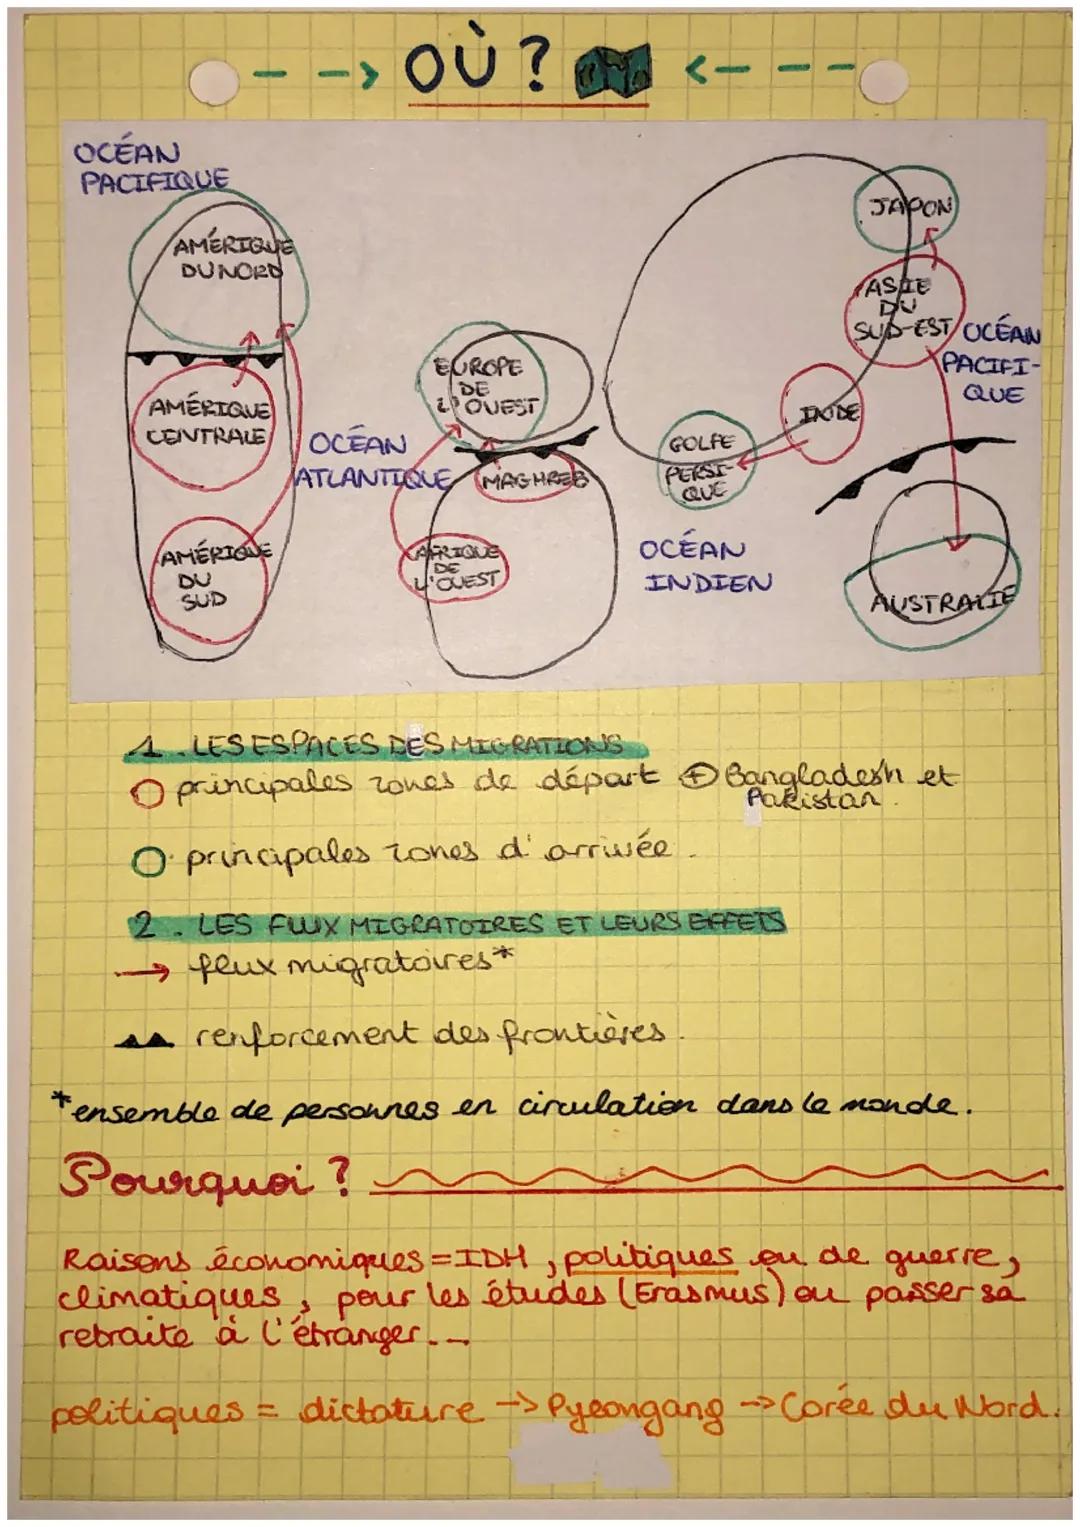 OÙ ?
OCÉAN
PACIFIQUE
AMÉRIQUE
DU NORD
AMÉRIQUE
CENTRALE
AMÉRIQUE
DU
SUD
OCÉAN
ATLANTIQUE
EUROPE
DE
L'OUEST
MAGHREB
AFRIQUE
DE
L'OUEST
JAPON
ASIE
DU
SUD-EST
OCÉAN
PACIFI-
QUE
INDE
GOLFE
PERSI-
QUE
OCÉAN
INDIEN
AUSTRALIE
1. LES ESPACES DES MIGRATIONS
principales zones de départ + Bangladesh et
Pakistan.
principales zones d'arrivée.
2. LES FLUX MIGRATOIRES ET LEURS EFFETS
→ flux migratoires*
renforcement des frontières.
*ensemble de personnes en circulation dans le monde.
Pourquoi ?
Raisons économiques = IDH, politiques ou de guerre,
climatiques, pour les études (Erasmus) ou passer sa
retraite à l'étranger...
politiques = dictature -> Pyeongang -> Corée du Nord.